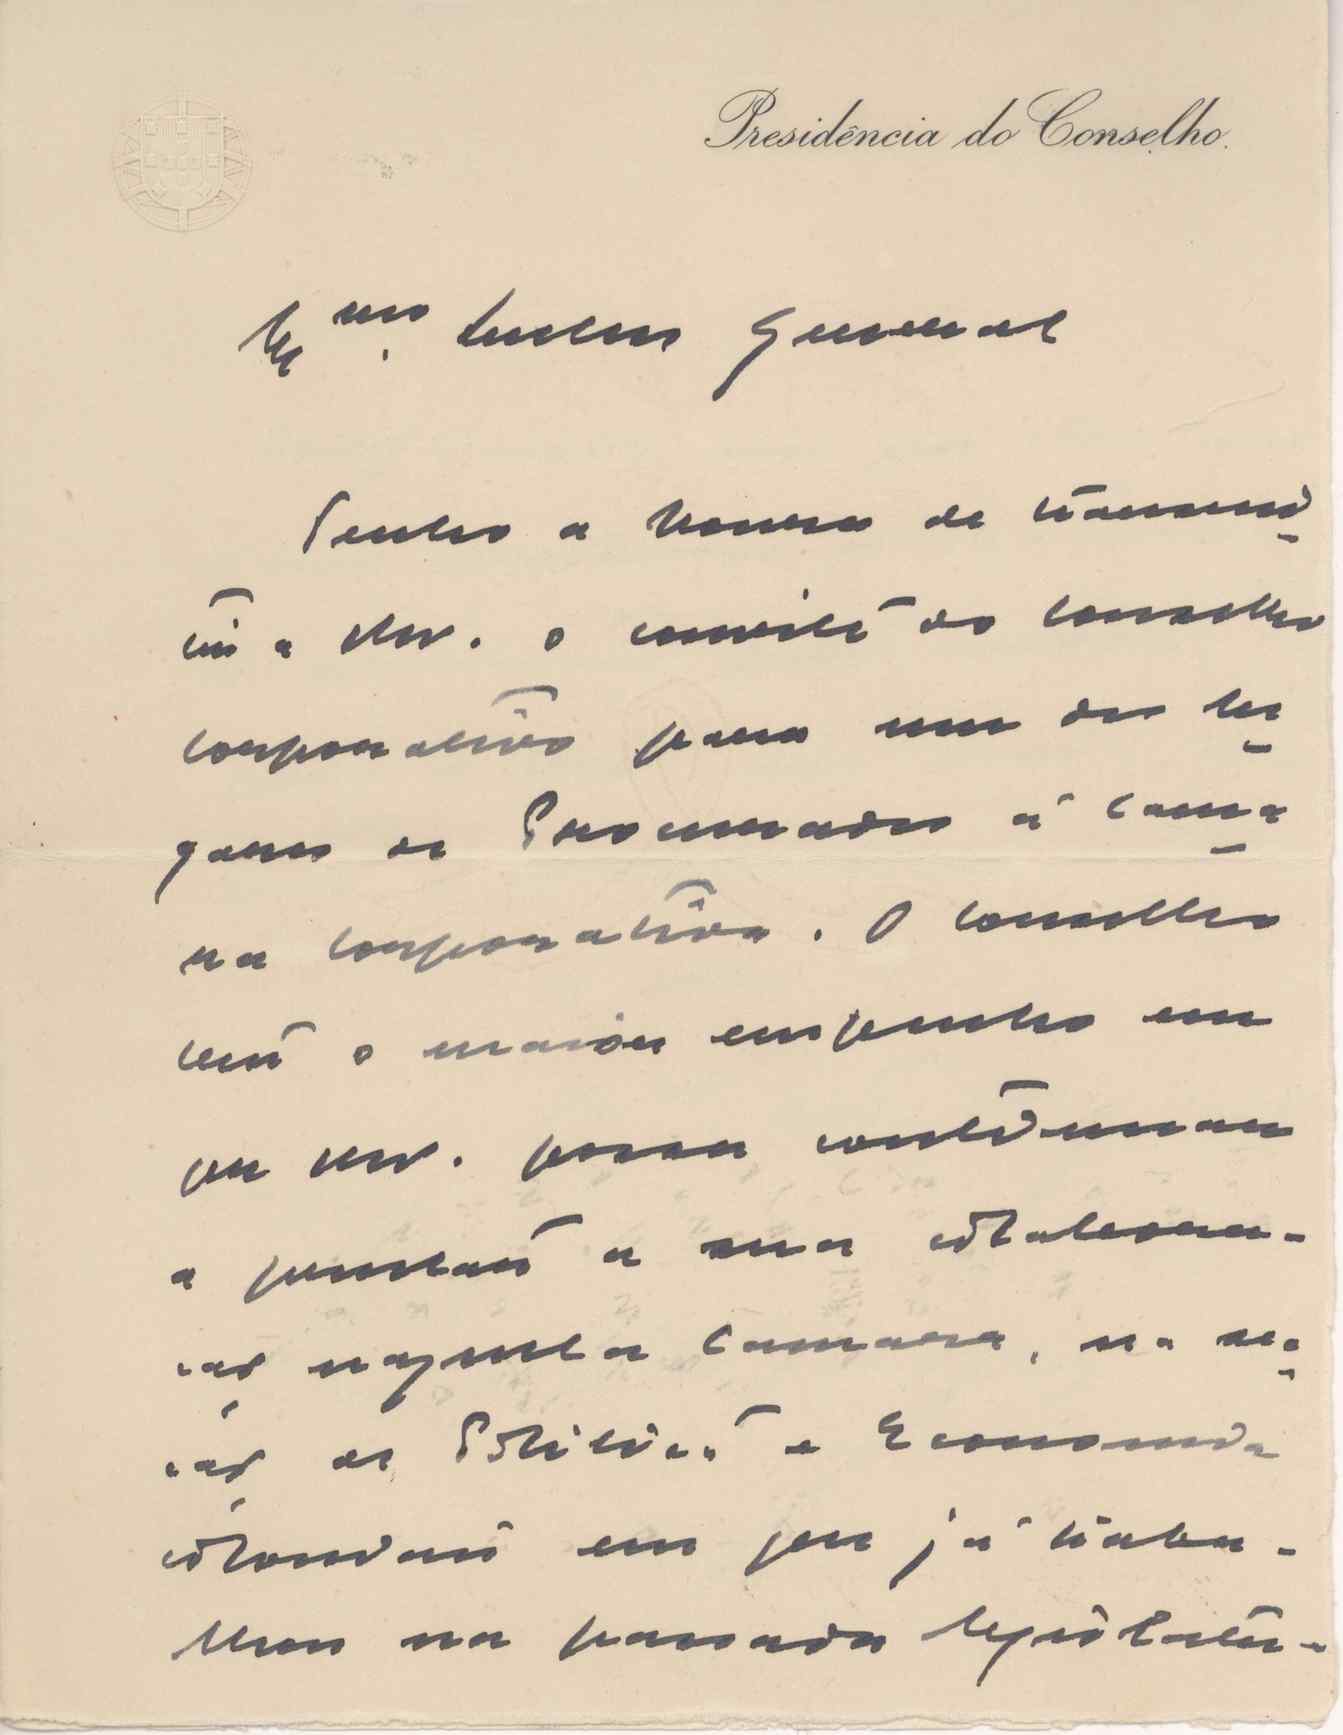 Presidência do Conselho.
Exmo. Senhor General
Tenho a honra de transmi-
tir a V. Ex. o convite do Conselho
Corporativo para um dos lu-
gares de Procurador à Cama-
ra Corporativa. O Conselho
tem o maior empenho em
que V. Ex. possa continuar
a prestar a sua colabora-
ção naquela Camara, na sec-
ção de Politica e Economia
coloniais em que já traba-
lhou na passada legislatu-